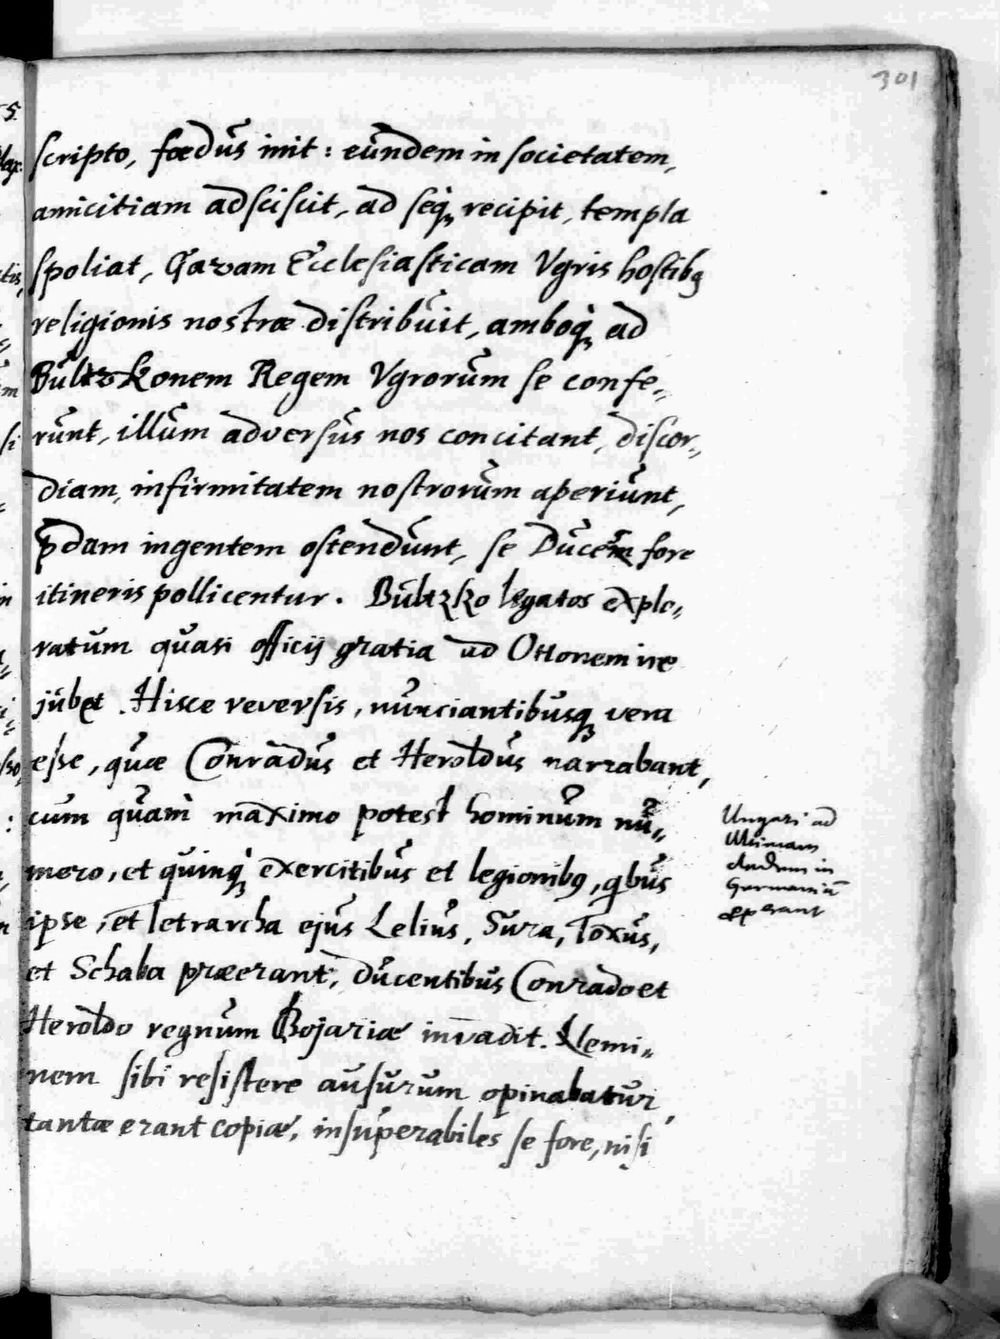 301
scripto, foedus init : eundem in societatem,
amicitiam adsciscit, ad seq₃ recipit, templa
spoliat, Gazam Ecclesiasticam Vgris hostibꝰ
religionis nostræ distribuit, amboq₃ ad
Bultzkonem Regem Vgrorum se confe„
runt, illum adversus nos concitant, discor„
diam, infirmitatem nostrorum aperiunt,
p̄dam ingentem ostendunt, se Ducem fore
itineris pollicentur. Bultzko legatos explo„
ratum quasi officij gratia ad Ottonem ire
jubet. Hisce reversis, nunciantibusq₃ vera
esse, quæ Conradus et Heroldus narrabant,
cum quam maximo potest hominum nu„
mero, et quinq₃ exercitibus et legionibꝰ, qbus
ipse, et tetrarcha ejus Lelius, Sura, Toxus,
et Schaba præerant, ducentibus Conrado et
Heroldo regnum Bojariæ invadit. Nemi„
nem sibi resistere ausurum opinabatur,
tantæ erant copiæ, insuperabiles se fore, nisi
Ungari ad
in
Germaniā